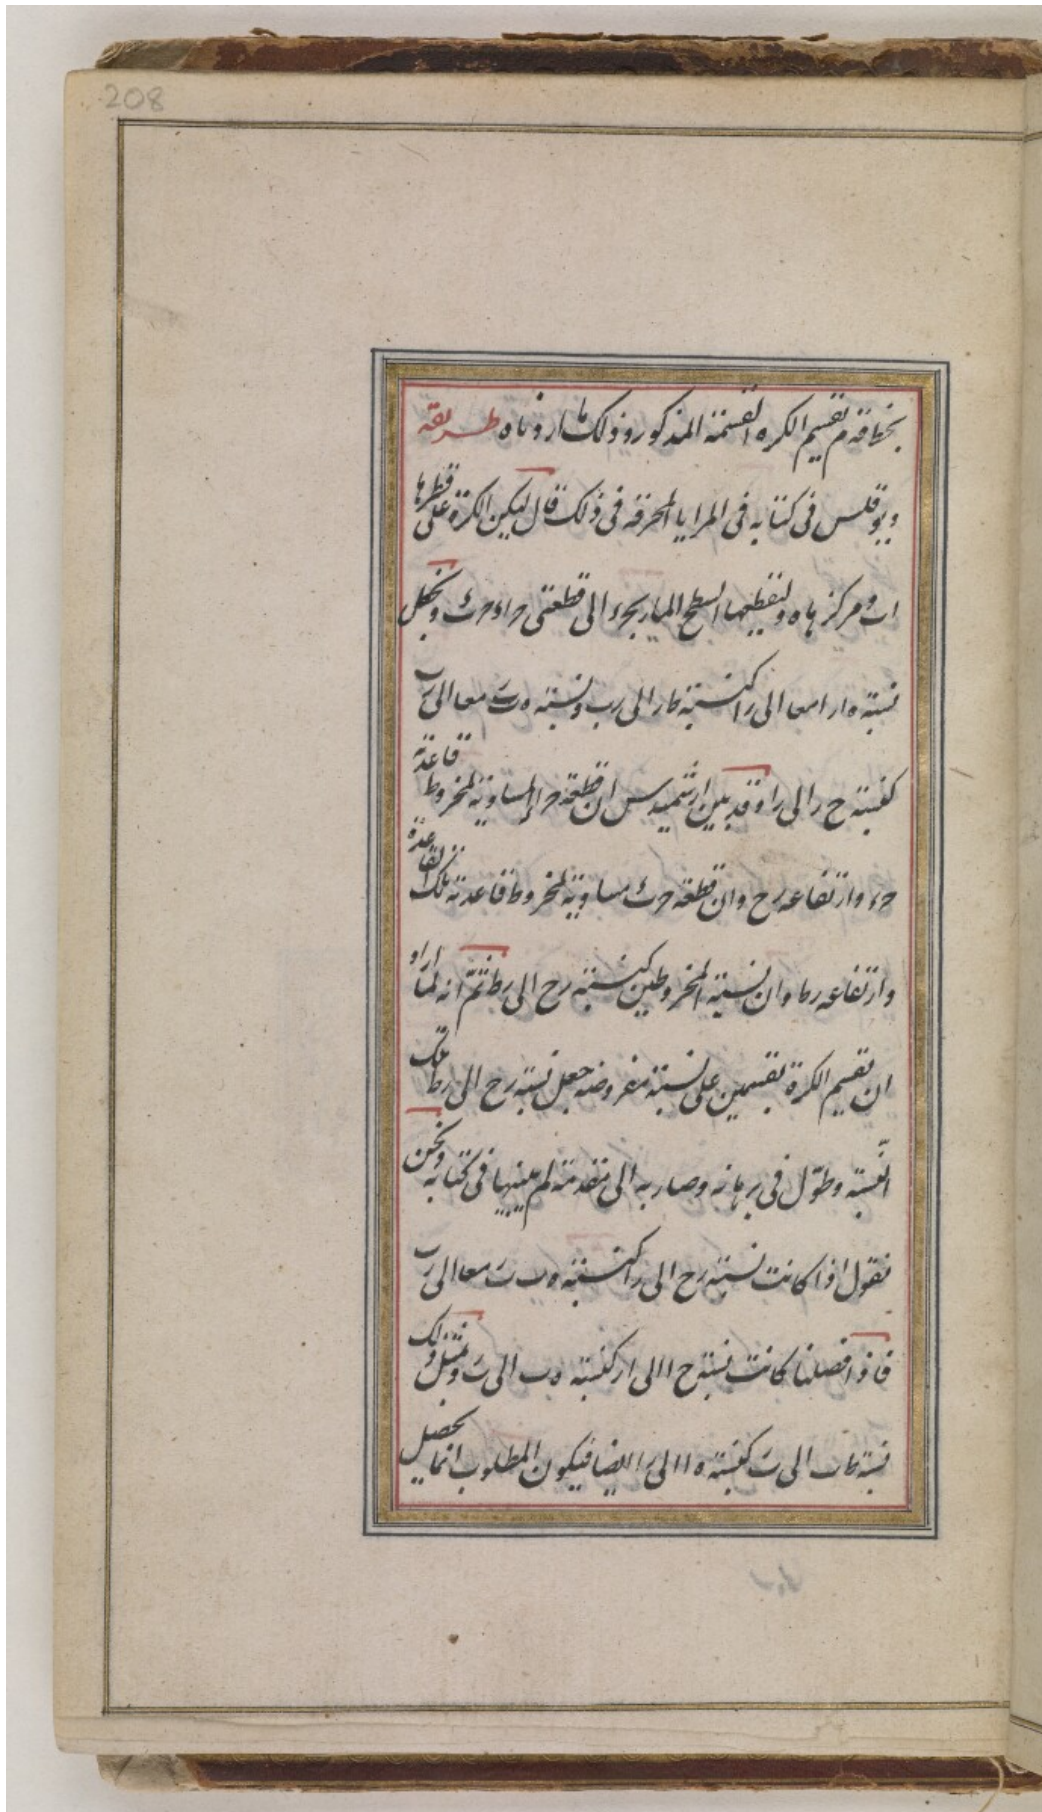 208
بخطافة م تقسيم الكرة القسمة المذكورة وذلك ما اردناه طريقة
ديوقلس فى كتابه فى المرايا المحرقة فى ذلك قال ليكن الكرة على قطرها
اب ومركزها ه وليقطعها السطح المار بجء الى قطعتى ونجعل
نسبة ه ا را معا الى را كنسبة طر الى رب ونسبة ه ب رب معا الى رب
كنسبة ح ر الى را وقد بين ارشميدس ان قطعة مساوية لمخروط قاعدته
جء وارتفاعه رح وان قطعة مساوية لمخروط قاعدته تلك القاعدة
وارتفاعه رط وان نسبة المخروطين كنسبة رح الى رط ثم انه لما اراد
ان تقسيم الكرة بقسمين على نسبة مفروضة جعل نسبة رح الى رط تلك
النسبة وطوّل فى برهانه وصار به الى مقدمة لم يبينها فى كتابه ونحن
نقول اذا كانت نسبة رح الى را كنسبة ه ب رب معا الى رب
فاذا فصلنا كانت نسبة ح ا الى ار كنسبة ه ب الى رب ومثل ذلك
نسبة طب الى رب كنسبة ه ا الى را ايضا فيكون المطلوب انما يحصل